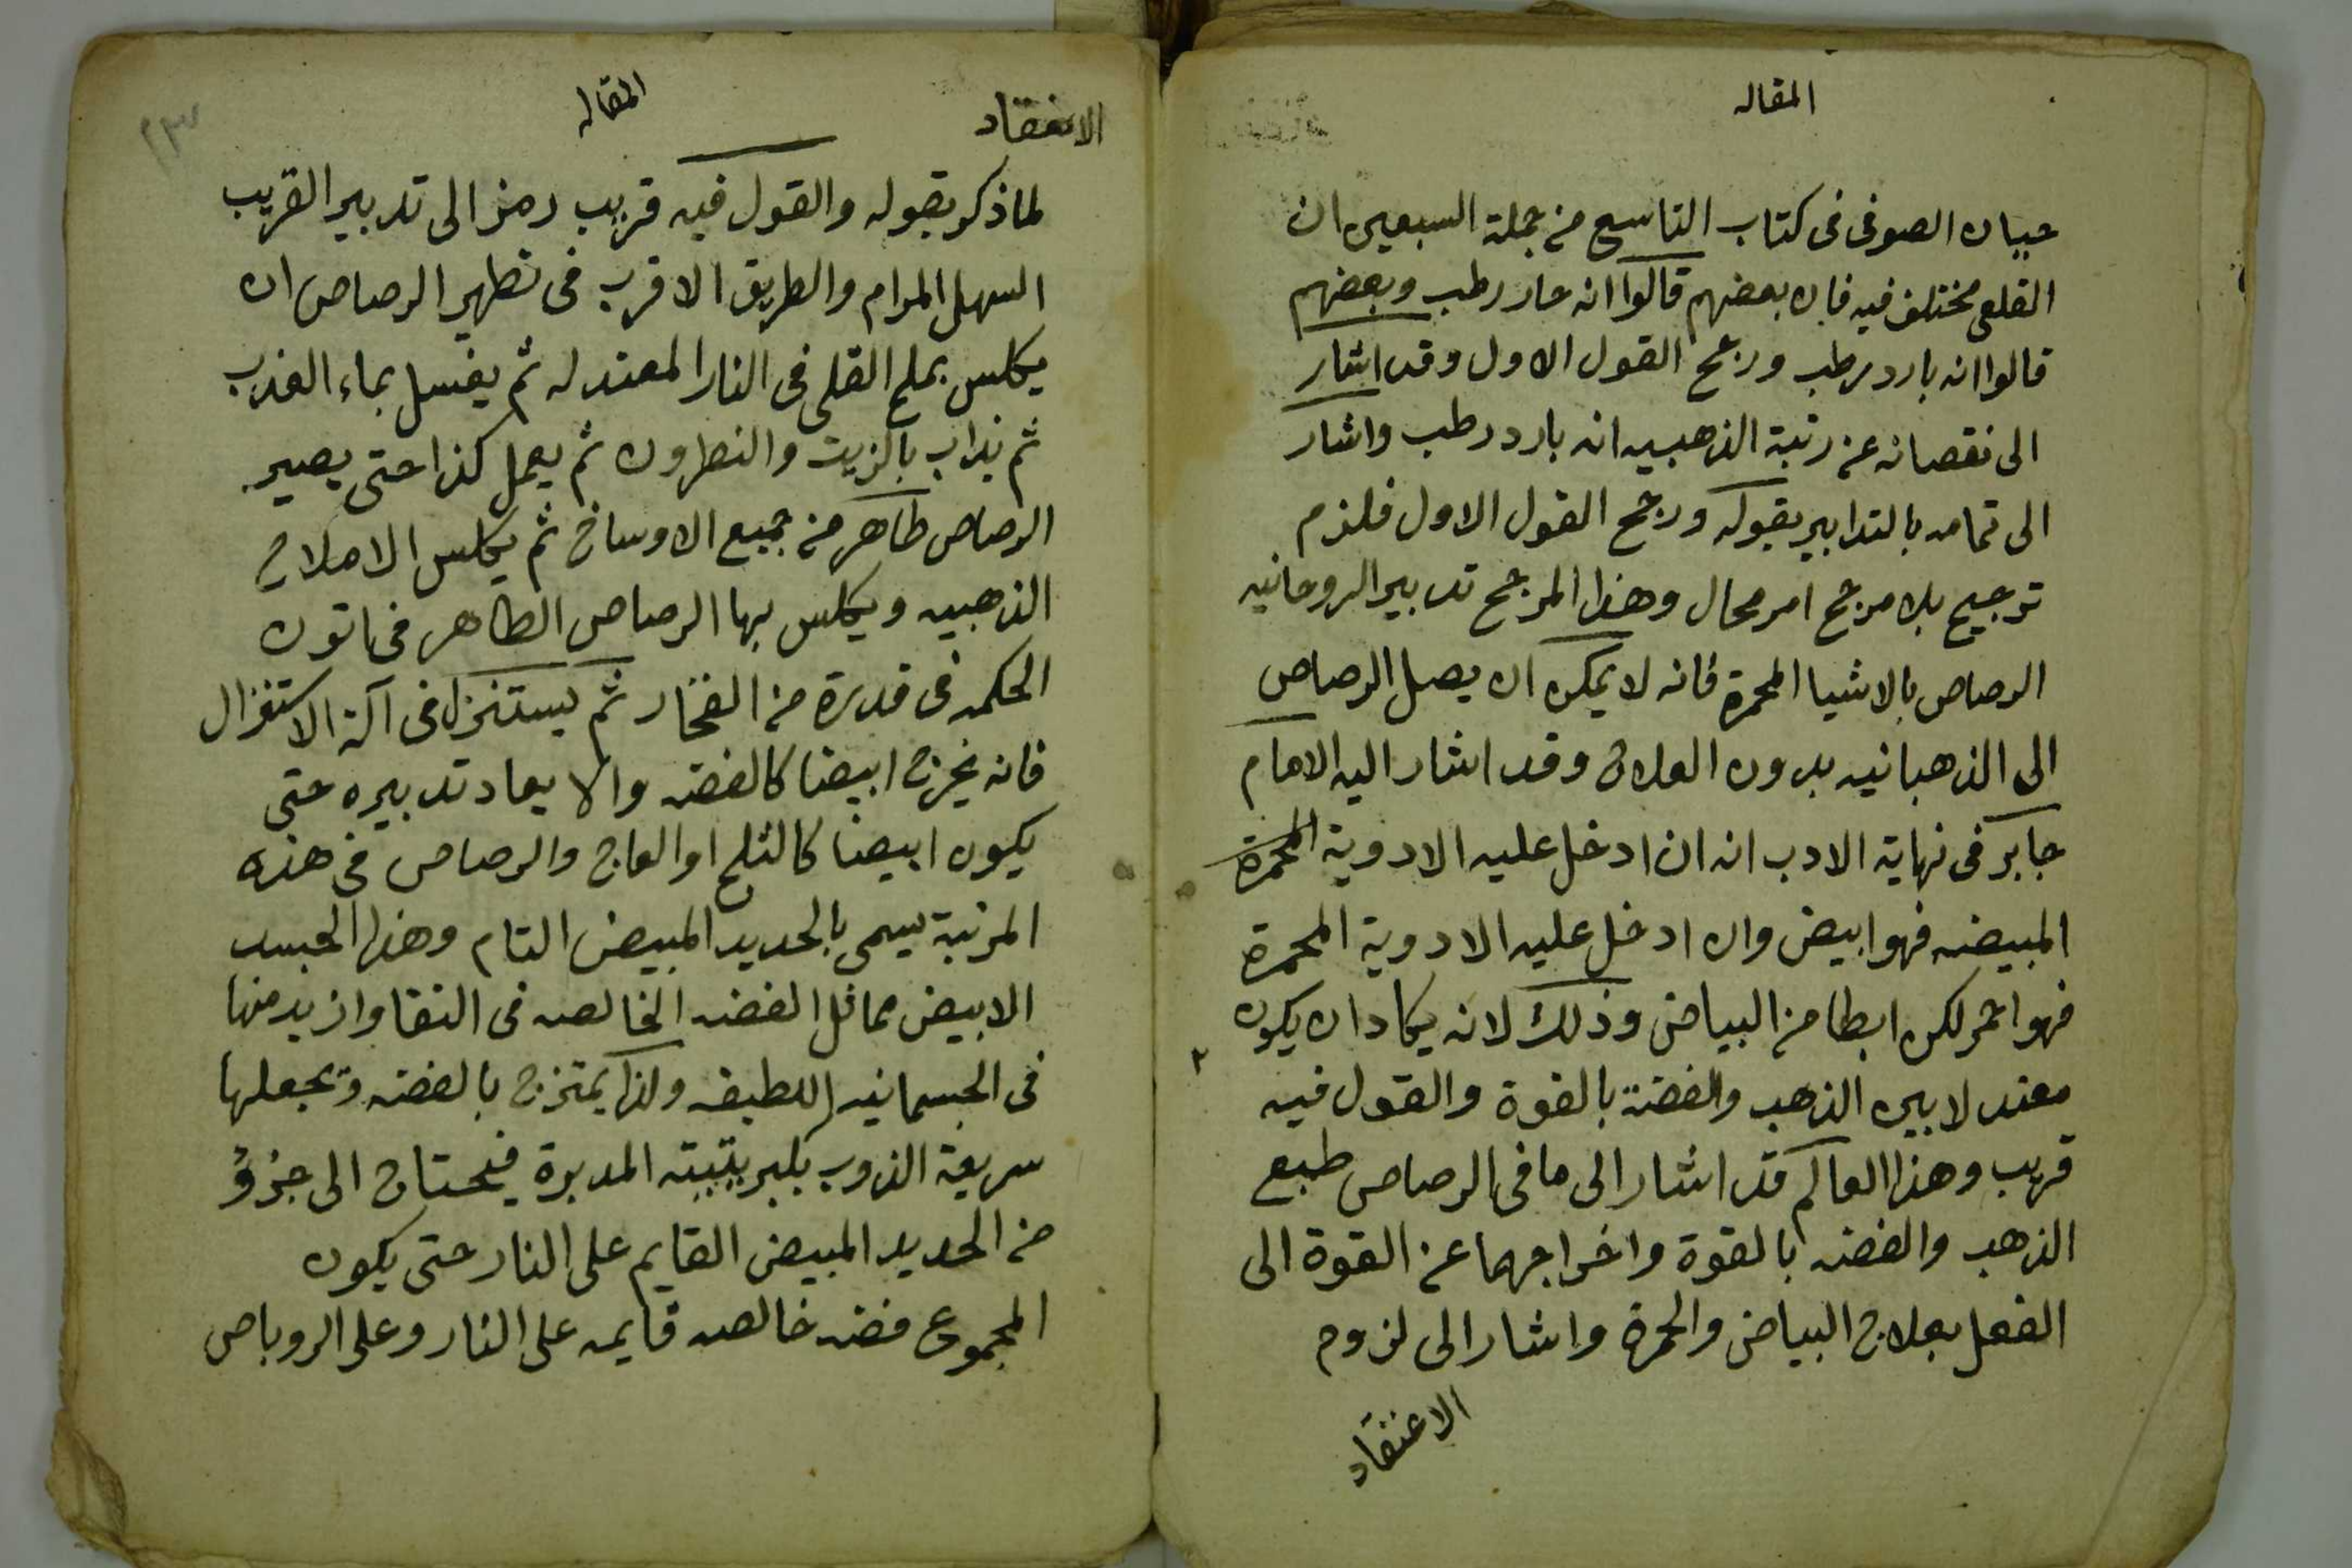 المقاله
حيان الصوفى فى كتاب التاسع من جملة السبعين ان
القلعى مختلف فيه فان بعضهم قالوا انه حار رطب وبعضهم
قالوا انه بارد رطب ورجح القول الاول وقد اشار
الى نقصانه عن رتبة الذهبيه انه بارد رطب واشار
الى تمامه بالتدابير بقوله ورجح القول الاول فلزم
ترجيح بلا مرجح امر محال وهذا المرجح تدبير الروحانيه
الرصاص بالاشيا المحمرة فانه لا يمكن ان يصل الرصاص
الى الذهبانيه بدون العلاج وقد اشار اليه الامام
جابر فى نهاية الادب انه ان ادخل عليه الادوية المحمرة
المبيضه فهو ابيض وان ادخل عليه الادوية المحمرة
فهو احمر لكن ابطا من البياض وذلك لانه يكاد ان يكون
معتدلا بين الذهب والفضة بالقوة والقول فيه
قريب وهذا العالم قد اشار الى ما فى الرصاص طبع
الذهب والفضه بالقوة واخراجهما عن القوة الى
الفعل بعلاج البياض والحمرة واشار الى لزوم
الاعتقاد
المقاله
الاعتقاد
٢٣
لما ذكر بقوله والقول فيه قريب رمز الى تدبير القريب
السهل المرام والطريق الاقرب فى تطهير الرصاص ان
يكلس بملح القلى فى النار المعتدله ثم يغسل بماء العذب
ثم يذاب بالزيت والنطرون ثم يعمل كذا حتى يصير
الرصاص طاهر من جميع الاوساخ ثم يكلس الاملاح
الذهبيه ويكلس بها الرصاص الطاهر فى اتون
الحكمه فى قدرة من الفخار ثم يستنزل فى آلة الاستنزال
فانه يخرج ابيضا كالفضه والا يعاد تدبيره حتى
يكون ابيضا كالثلج او العاج والرصاص فى هذه
المرتبة يسمى بالحديد المبيض التام وهذا الجسد
الابيض مماثل الفضه الخالصه فى النقا وازيد منها
فى الجسمانيه اللطيفه ولذا يمتزج بالفضه وتجعلها
سريعة الذوب المدبرة فيحتاج الى جزؤ
من الحديد المبيض القايم على النار حتى يكون
المجموع فضه خالصه قايمه على النار وعلى الروباص